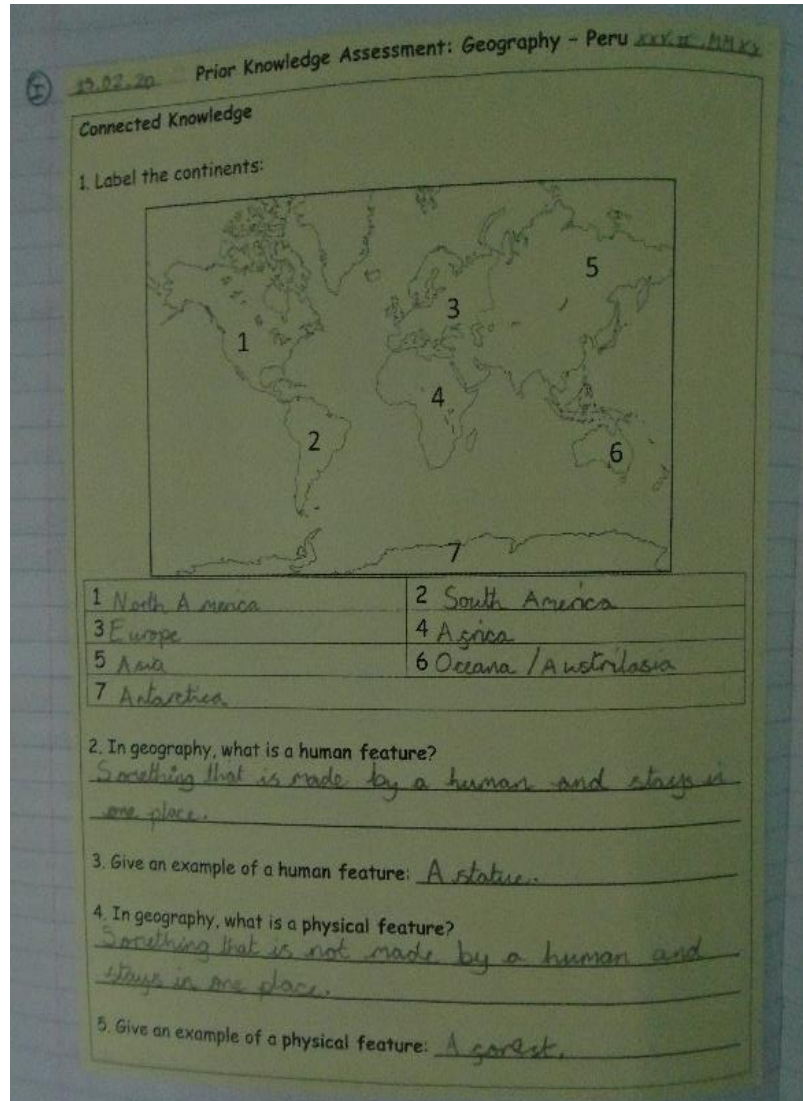 I
Prior Knowledge Assessment: Geography - Peru
Connected Knowledge
1. Label the continents:
5
3
1
4
2
6
7
1 North America 2 South America
3 Europe 4 Africa
5 Asia 6 Oceana / Austrilasia
7 Antarctica
2. In geography, what is a human feature?
Something that is made by a human and stays in
one place.
3. Give an example of a human feature: A statue.
4. In geography, what is a physical feature?
Something that is not made by a human and
stays in one place.
5. Give an example of a physical feature: A forest.